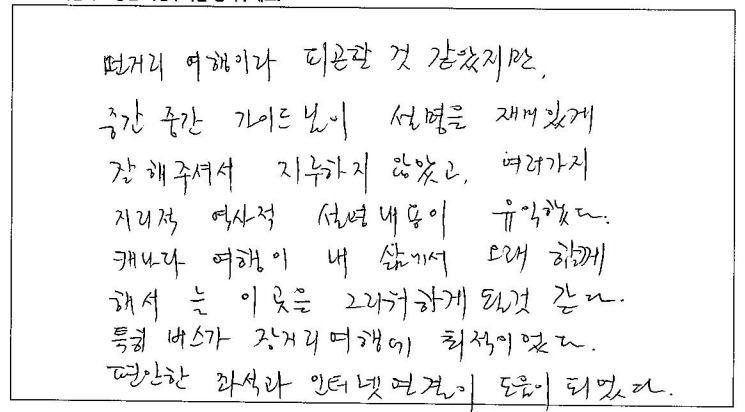 먼거리 여행이라 피곤할 것 같았지만,
중간 중간 가이드님이 설명을 재미있게
잘 해주셔서 지루하지 않았고, 여러가지
지리적 역사적 설명내용이 유익했다.
캐나다 여행이 내 삶에서 오래 함께
해서 늘 이 곳을 그리워하게 될것 같다.
특히 버스가 장거리여행에 최적이었다.
편안한 좌석과 인터넷연결이 도움이 되었다.